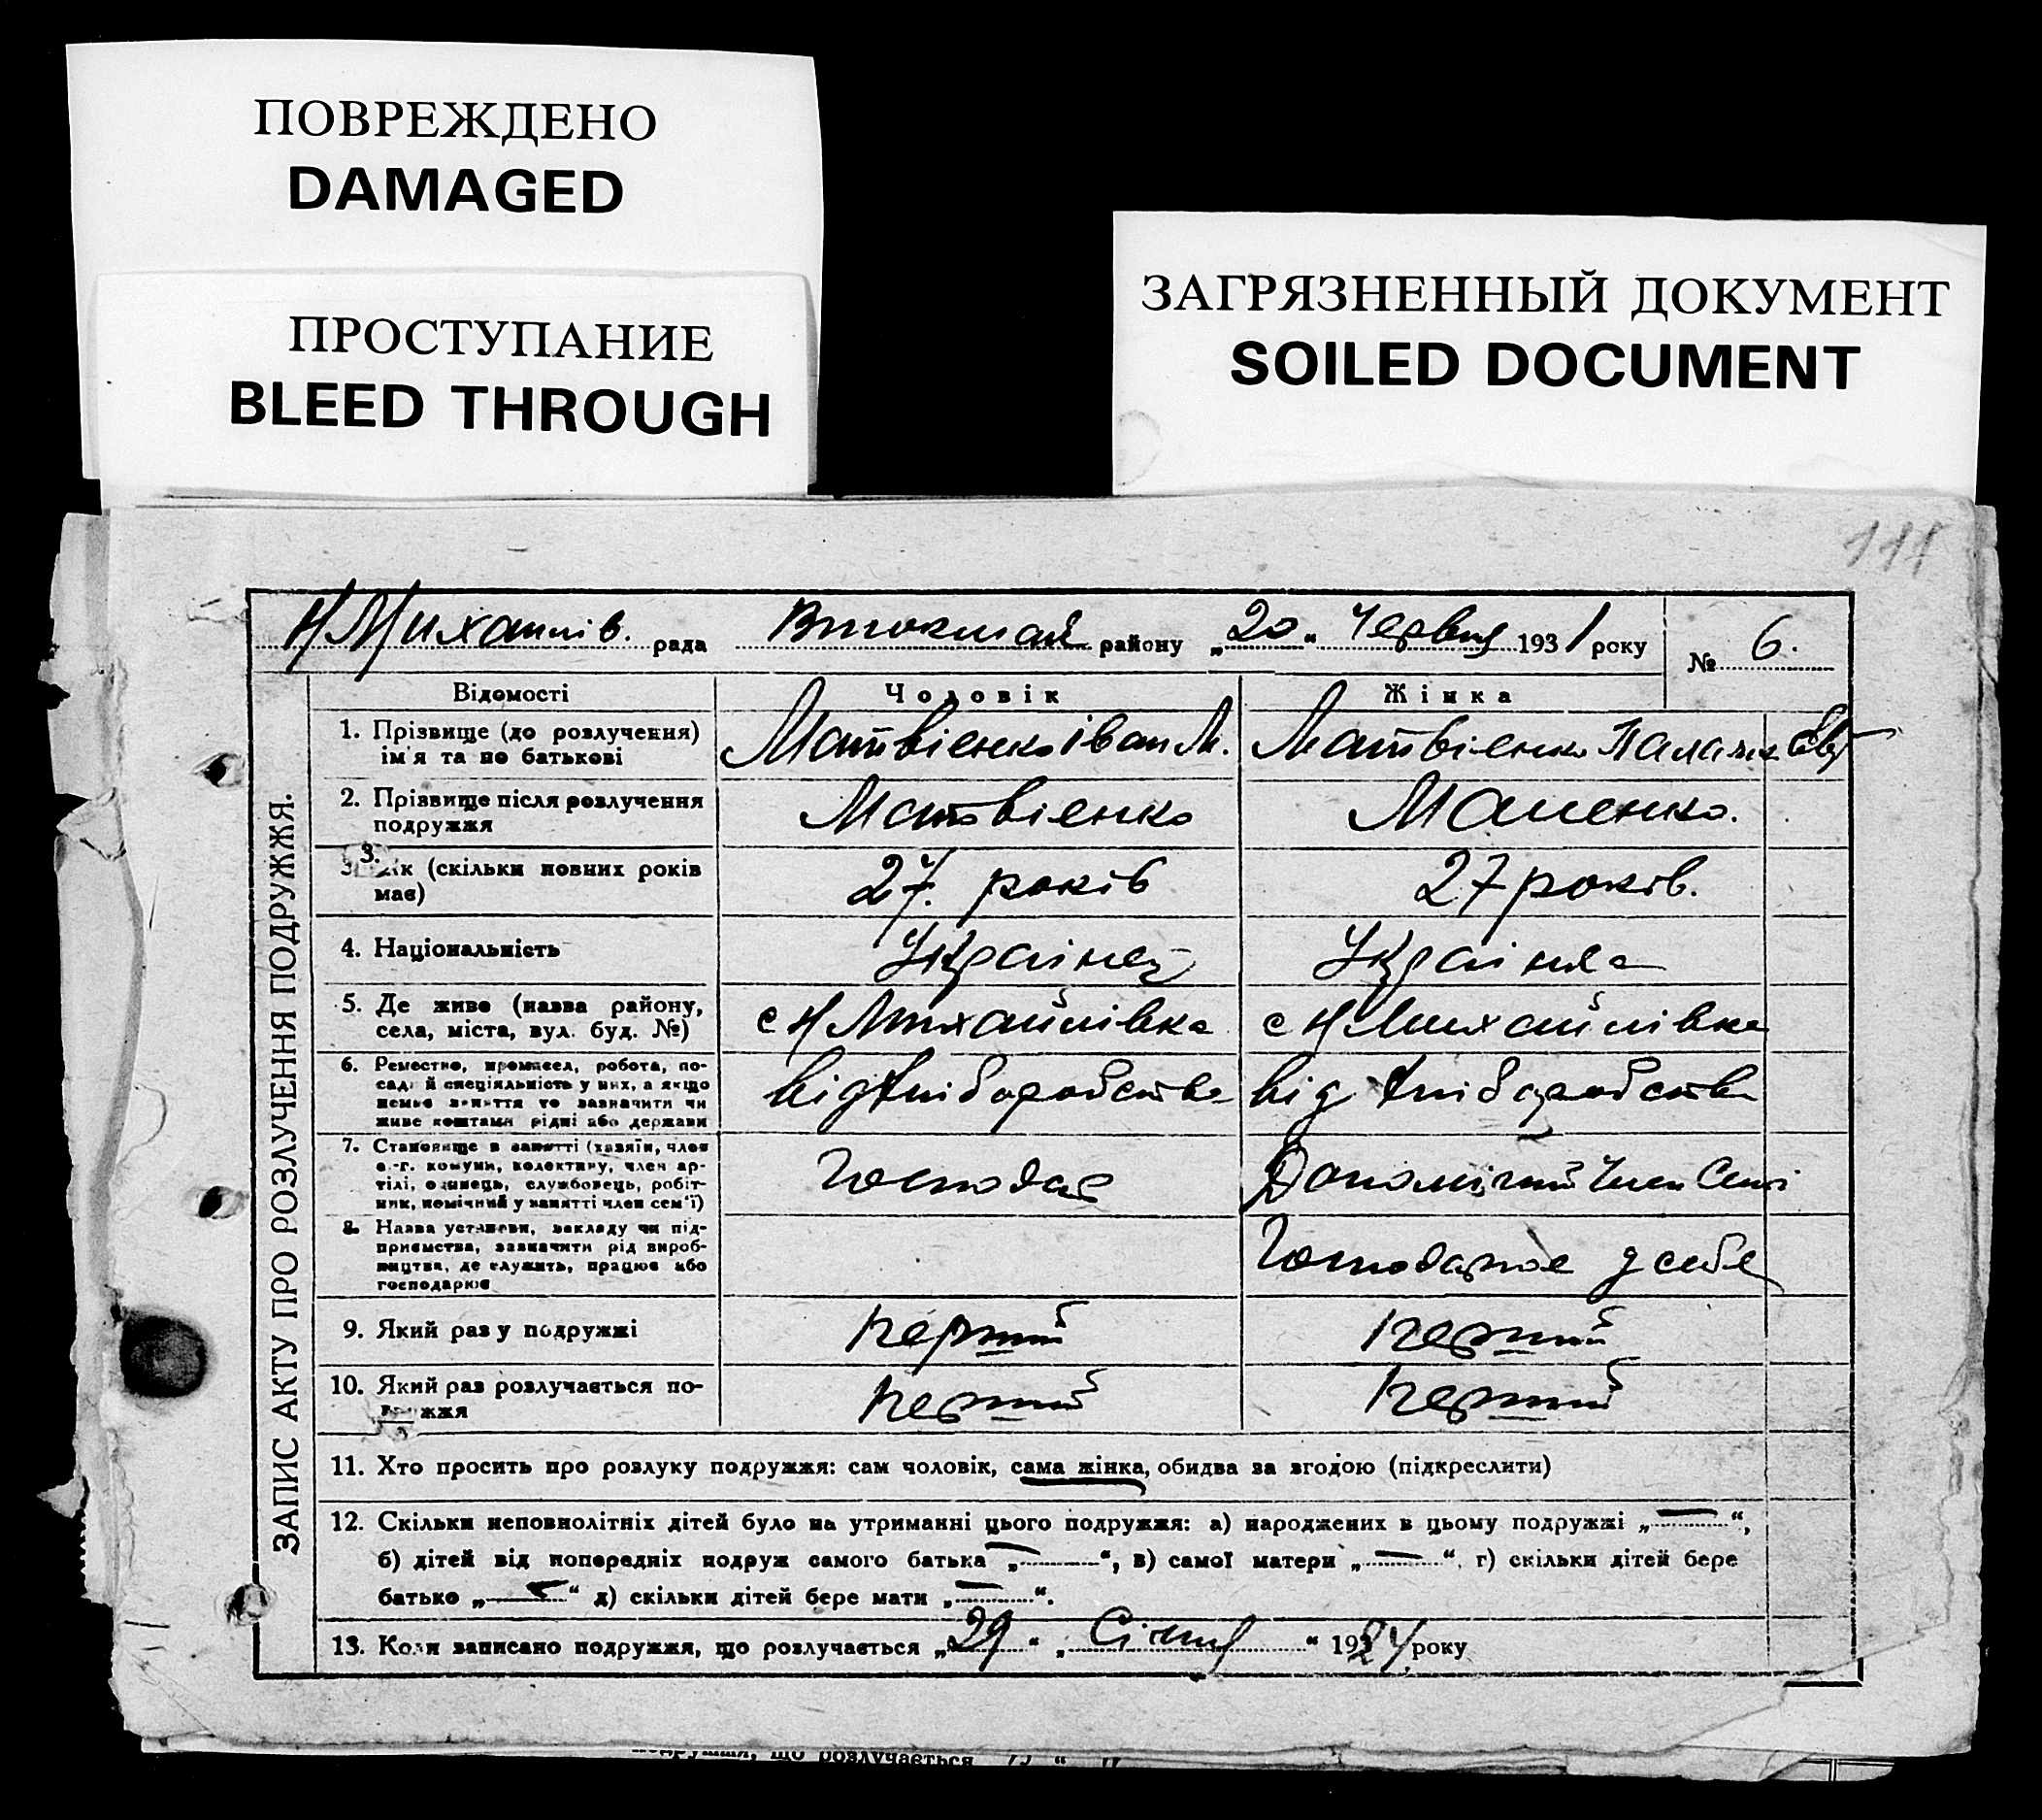 ПОВРЕЖДЕНО
DAMAGED
ПРОСТУПАНИЕ
BLEED THROUGH
ЗАГРЯЗНЕННЫЙ ДОКУМЕНТ
SOILED DOCUMENT
111
Н/Михайлів. рада району „20“ Червня 1931 року № 6.
ЗАПИС АКТУ ПРО РОЗЛУЧЕННЯ ПОДРУЖЖЯ.
Відомості Чоловік Жінка
1. Прізвище (до розлучення) Матвієнко Іван М. Матвієнко Палажка Євт
ім'я та по батькові
2. Прізвище після розлучення Матвієнко
подружжя
3. Вік (скільки повних років 27. років 27 років.
має)
4. Національність Українец Українка
5. Де живе (назва району, с Н/Михайлівка с Н/Михайлівка
села, міста, вул. буд. №)
6. Ремество, промисел, робота, по- від хліборобства від хліборобства
сада й спеціяльність у них, а якщо
немає заняття то зазначити чи
живе коштами рідні або держави
7. Становище в занятті (хазяїн, член Господар Допомічний член семі
с.-г. комуни, колективу, член ар-
тілі, одинець, службовець, робіт-
ник, помічний у занятті член сем'ї)
8. Назва установи, закладу чи під- Господарює у себе
приємства, зазначити рід вироб-
ництва, де служить, працює або
господарює
9. Який раз у подружжі перший перший
10. Який раз розлучається по- перший перший
дружжя
11. Хто просить про розлуку подружжя: сам чоловік, сама жінка, обидва за згодою (підкреслити)
12. Скільки неповнолітніх дітей було на утриманні цього подружжя: а) народжених в цьому подружжі „—“,
б) дітей від попередніх подруж самого батька „—“, в) самої матери „—“, г) скільки дітей бере
батько „—“ д) скільки дітей бере мати „—“.
13. Коли записано подружжя, що розлучається „29“ „Січня“ 1924 року
подружжя, що розлучається